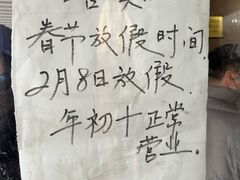 春节放假时间
2月8日放假.
年初十正常
营业.